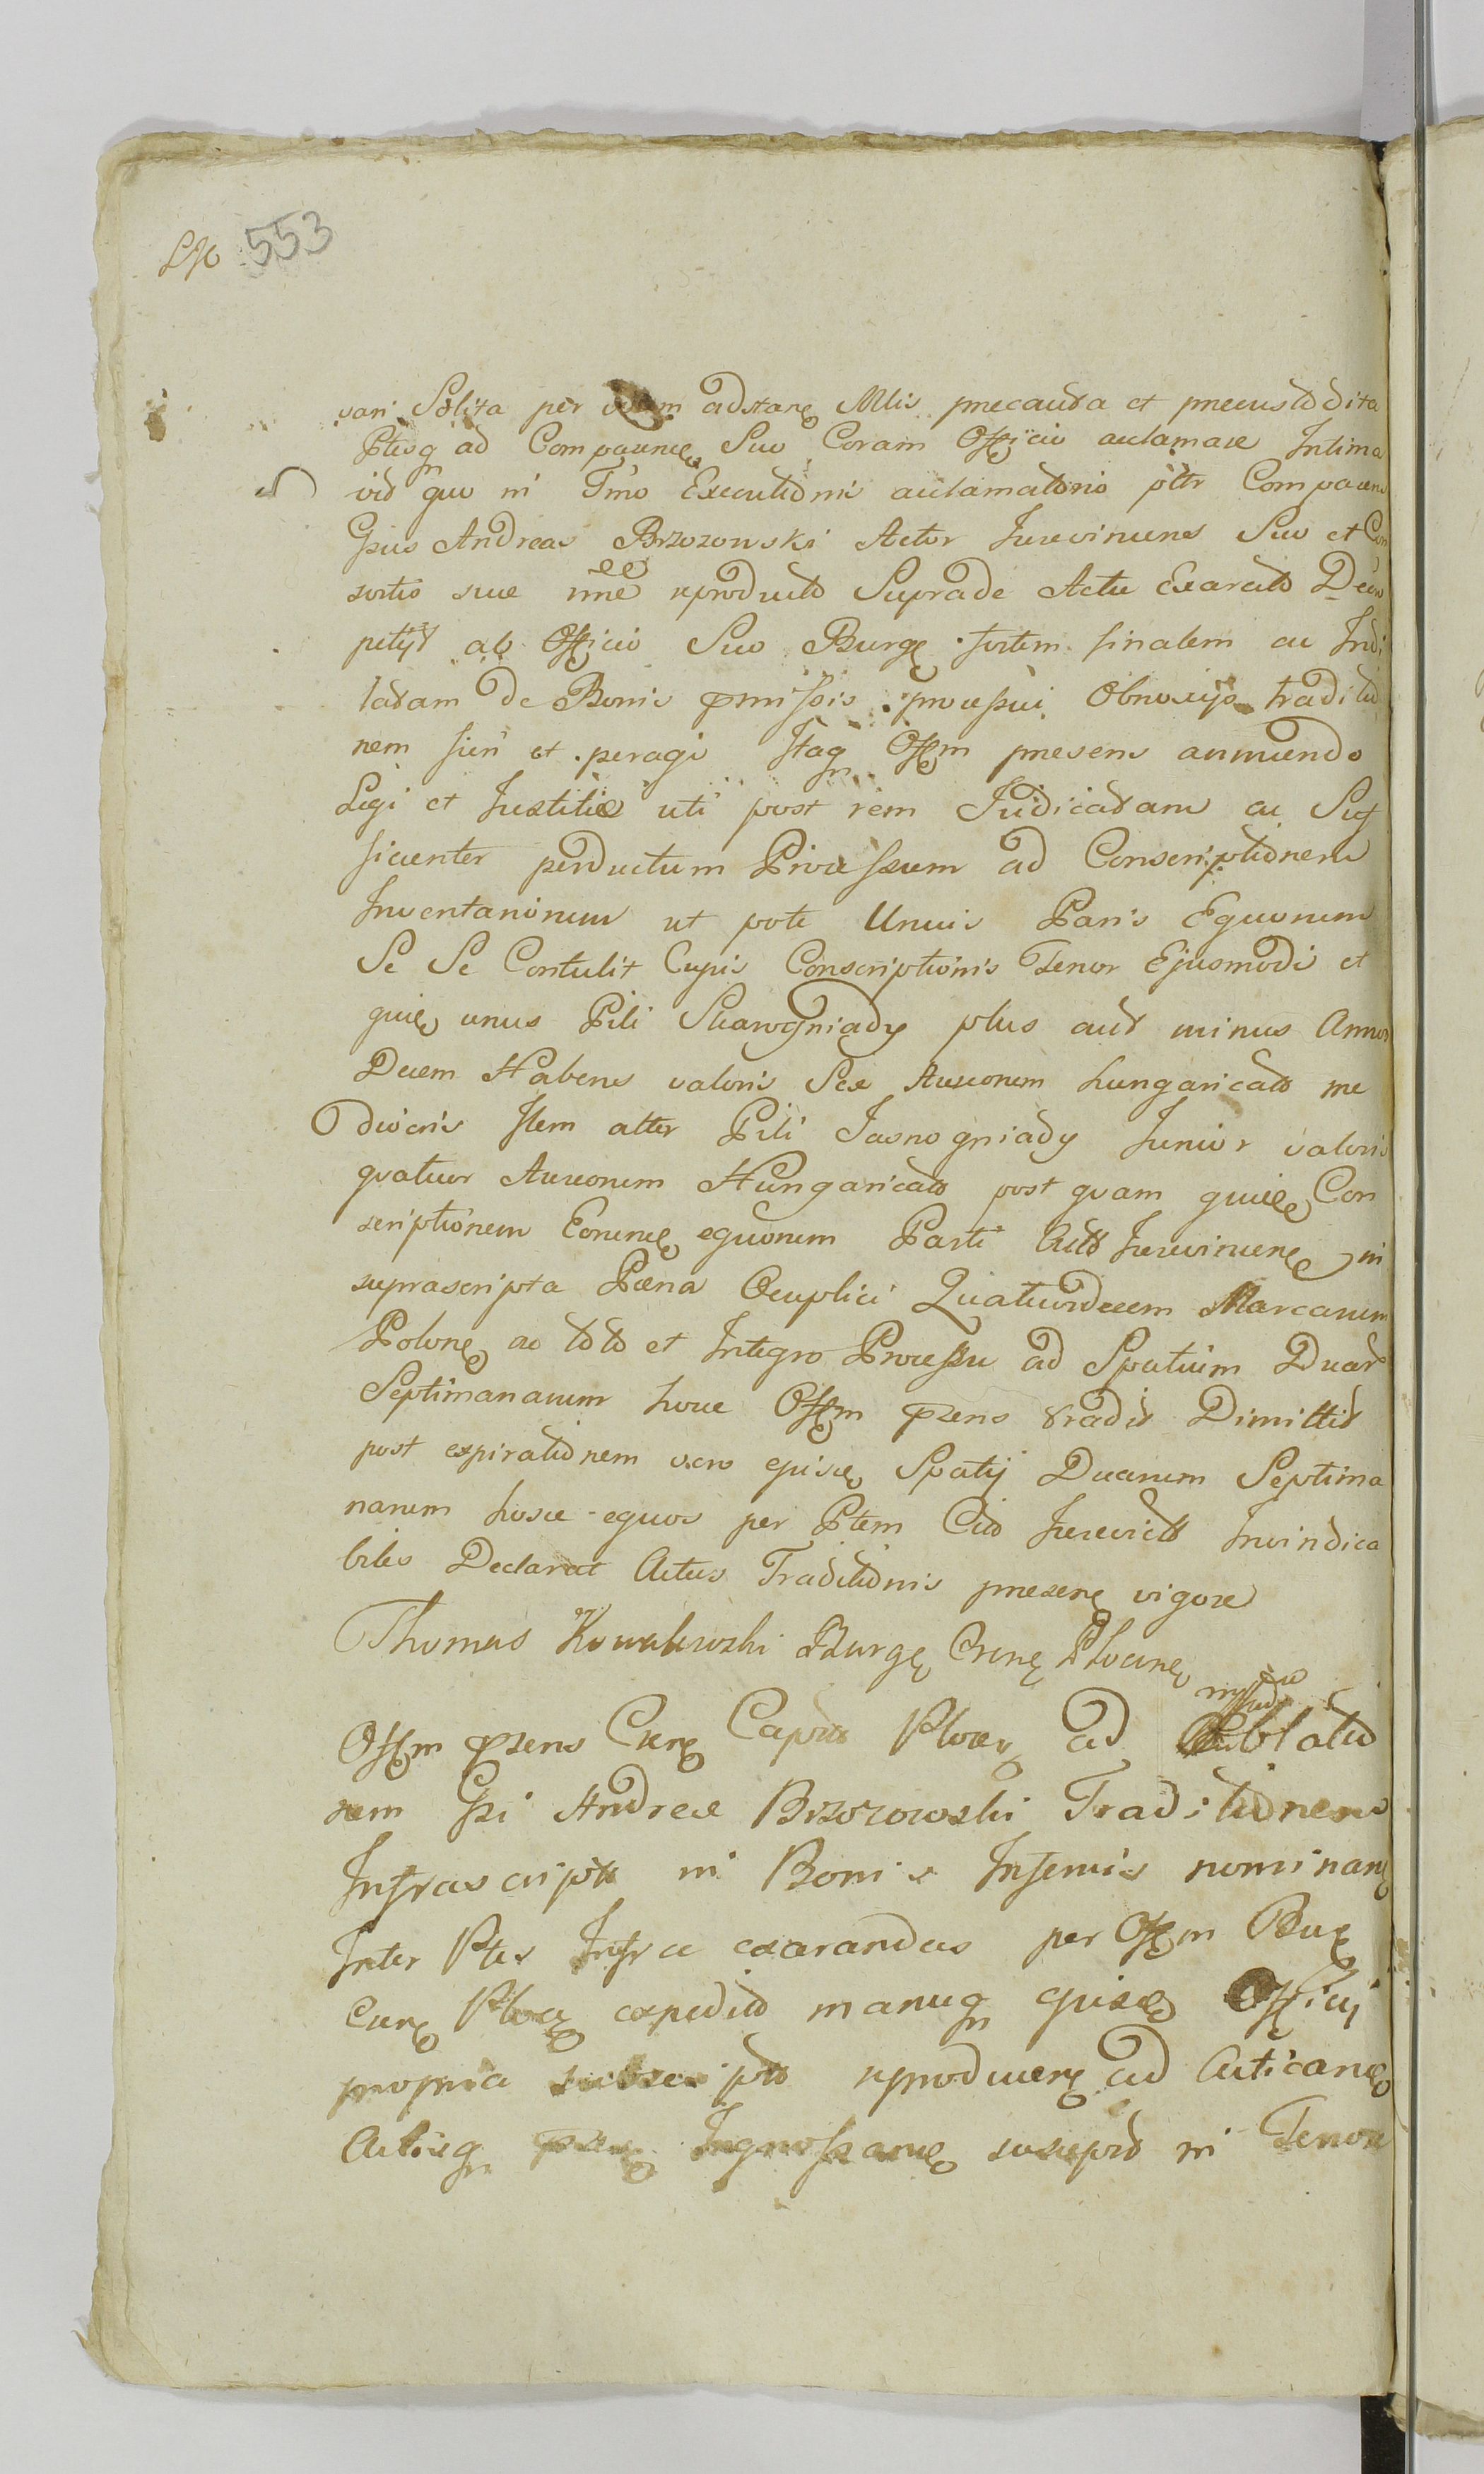 553
vari Solita per adstanę Mlis precauta et precustodita
Ptesq ad Comparenđ Suo Coram Officio aclamare Intima
vit quo in Tmo Executionis aclamatorio pttr Comparens
Gsus Andreas Brzozowski Actor Jurevincens Suo et Con
sortis suae nne reproducto Suprade Actu Exarato Decreto
petijt ab Officio Suo Burgę fortem finalem ac Indi
latam de Bonis pmissis processui Obnoxijs traditio
nem fieri et peragi Itaq Offm presens annuendo
Legi et Justitiae uti post rem Judicatam ac Suf
ficienter perductum Processum ad Conscriptionem
Inventariorum ut pote Unius Paris Equorum
Se Se Contulit Cujus Conscriptionis Tenor Ejusmodi et
quię unus Pili Skarogniady plus aut minus Annos
Decem Habens valoris Sex Aureorum hungaricalo me
diocris Item alter Pili Jasnogniady Junior valoris
quatuor Aureorum Hungaricalo post quam quidę Con
scriptionem Eorumdę equorum Parti Acto Jurevincenę in
suprascripta Paena Octuplici Quatuordecem Marcarum
Polonę ac toto et Integro Processu ad Spatium Duar
Septimanarum hocce Offm pzens tradit Dimittit
post expirationem vero ejusdę Spatij Duarum Septima
narum hosce equos per Ptem Cito Jurevicto Invindica
biles Declarat Actus Traditionis presenę vigore
Thomas Kowalewski Burgę Crenę Plocenę
Offm pzens Crenę Capto Plocę ad Oblatio
nem Gsi Andreae Brzozowski Traditionem
Infrascripto in Bonis Inferius nominanę
Inter Ptes Infra exarandas per Offm Burę
Crenę Plocę expedito manuq ejusdę Officij
propria subscripto reproducenę ad Acticandę
Actisq pzenę Ingrossandę suscepit in Tenore